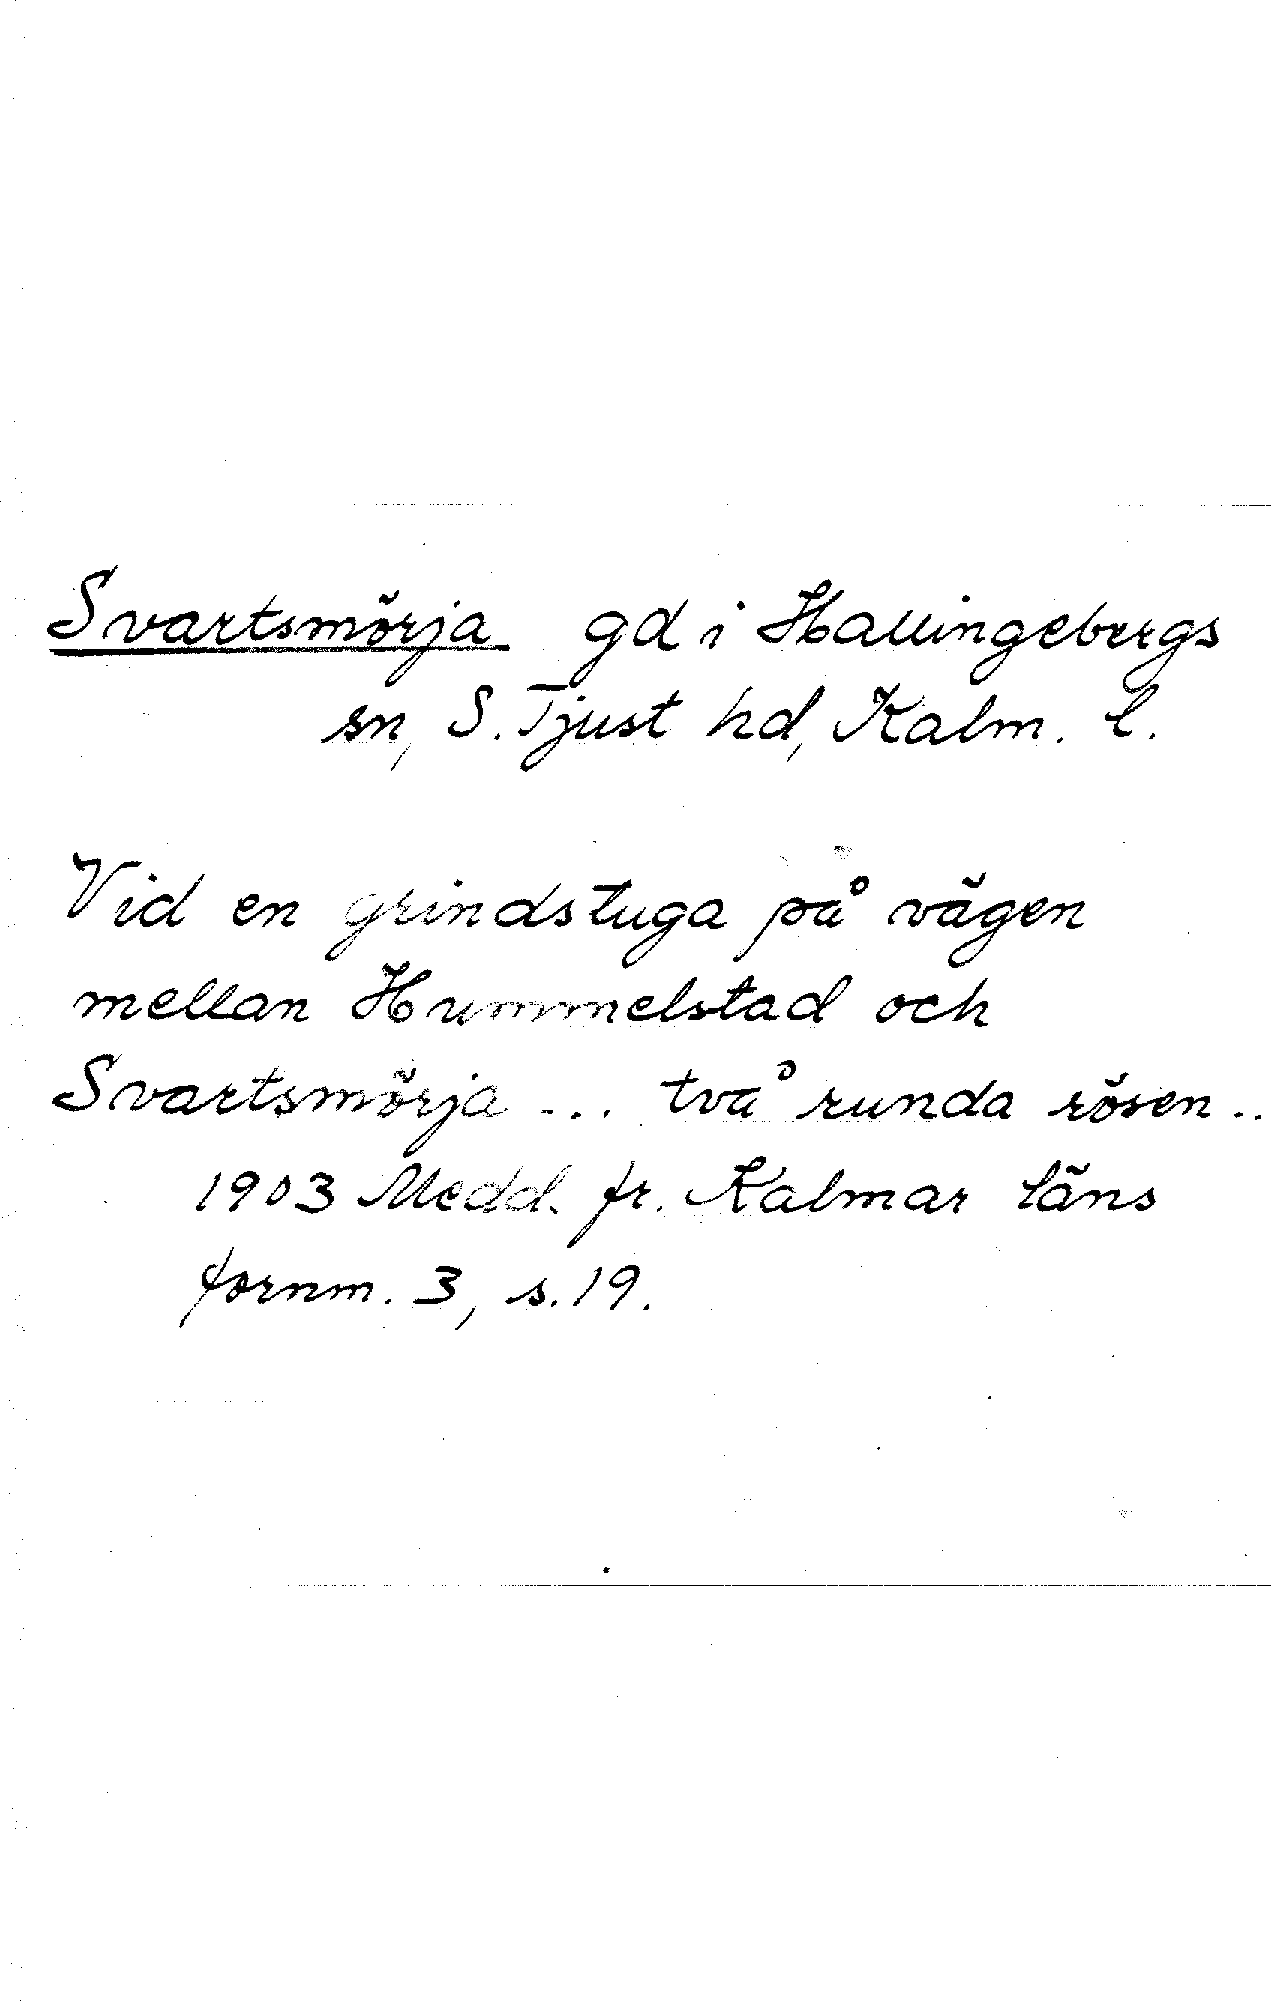 Svartsmörja gd i Hallingebergs
sn, S. Tjust hd, Kalm. l.
Vid en grindstuga på vägen
mellan Hummelstad och
Svartsmörja ... två runda rösen ..
1903 Medd. fr. Kalmar läns
fornm. 3, s. 19.